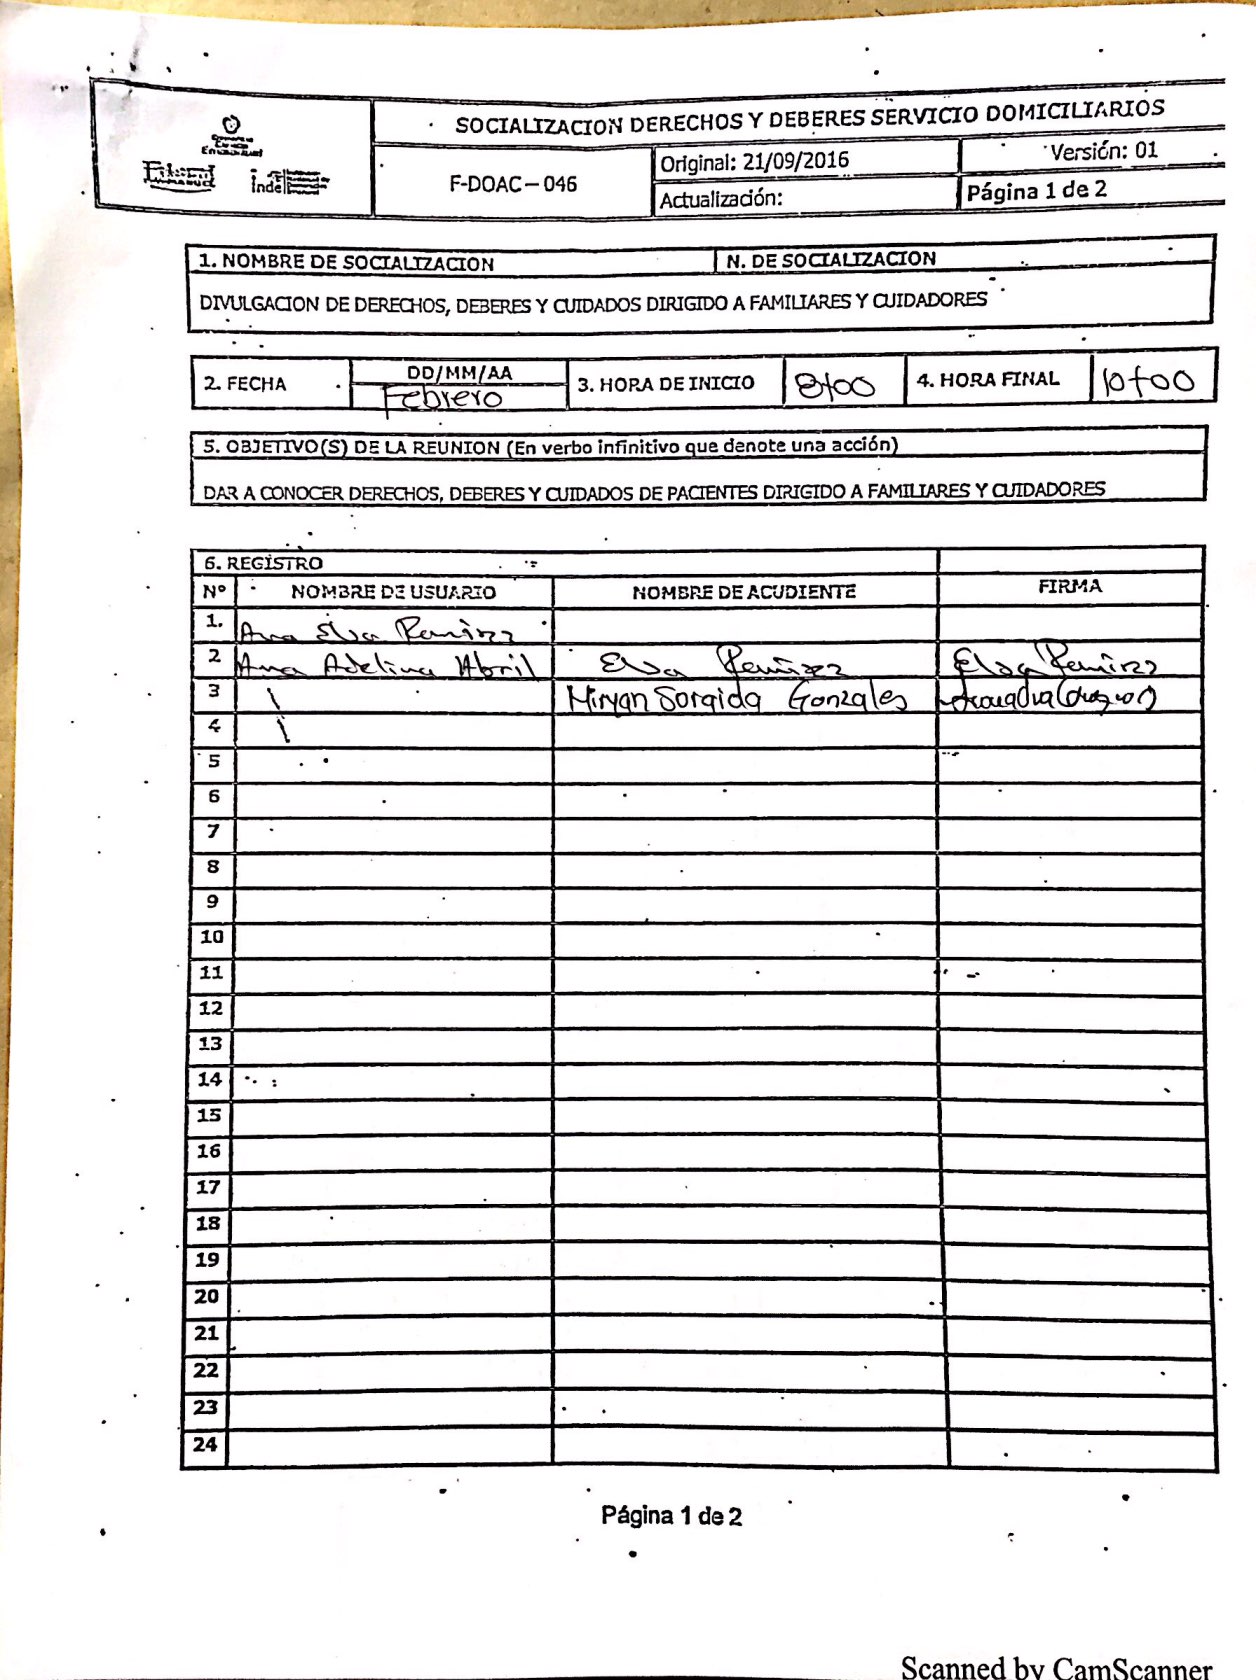 SOCIALIZACION DERECHOS Y DEBERES SERVICIO DOMICILIARIOS
F-DOAC-046
Original: 21/09/2016
Versión: 01
Actualización:
Página 1 de 2
1. NOMBRE DE SOCIALIZACION
N. DE SOCIALIZACION
DIVULGACION DE DERECHOS, DEBERES Y CUIDADOS DIRIGIDO A FAMILIARES Y CUIDADORES
2. FECHA
DD/MM/AA
Febrero
3. HORA DE INICIO
8+00
4. HORA FINAL
10+00
5. OBJETIVO(S) DE LA REUNION (En verbo infinitivo que denote una acción)
DAR A CONOCER DERECHOS, DEBERES Y CUIDADOS DE PACIENTES DIRIGIDO A FAMILIARES Y CUIDADORES
6. REGISTRO
Nº NOMBRE DE USUARIO NOMBRE DE ACUDIENTE FIRMA
1. Ana Elva Ramirez
2 Ana Adelina Abril Elva Ramirez Elva Ramirez
3 Miryan Sorgida Gonzales
4
5
6
7
8
9
10
11
12
13
14
15
16
17
18
19
20
21
22
23
24
Página 1 de 2
Scanned by CamScanner